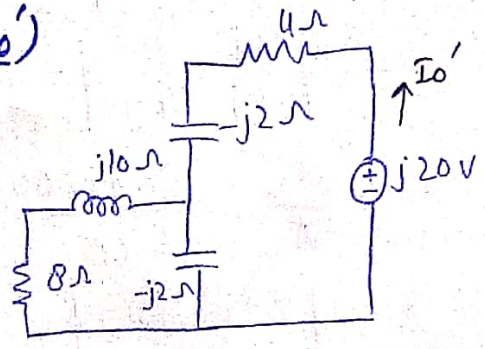 o')
4Ω
Io'
-j2Ω
j10Ω
+
-
j20V
8Ω
-j2Ω